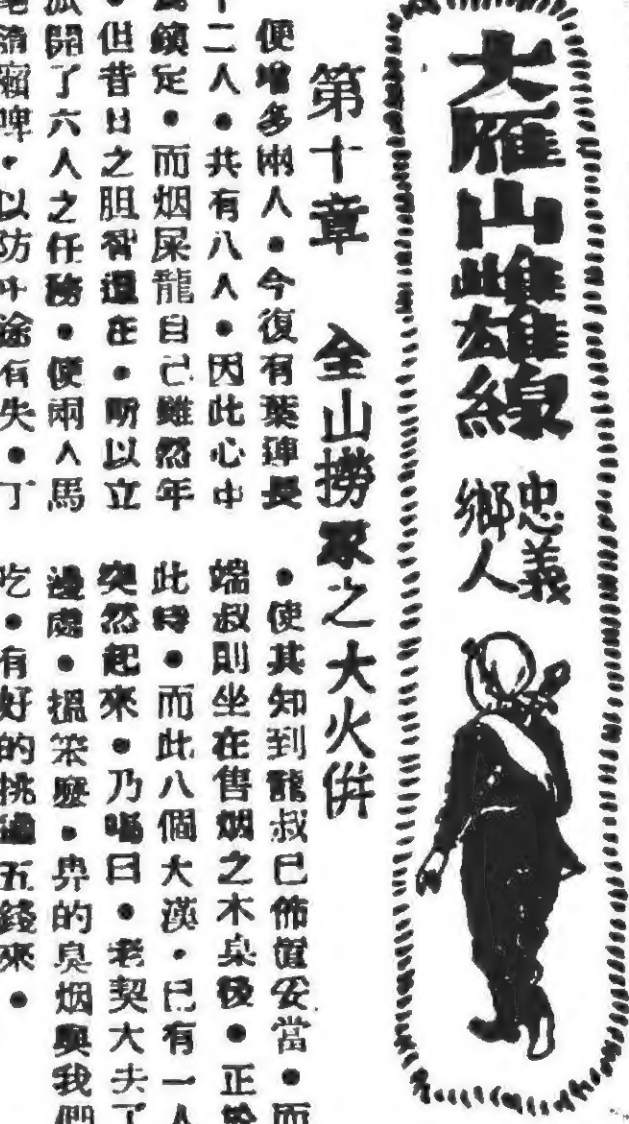 大雁山雌雄線
忠義
鄉人
第十章　全山撈家之大火併
便增多兩人●今復有葉琕長
十二人●共有八人●因此心中
鎮定●而烟屎龍自己雖然年
●但昔日之胆智還在●所以立
派開了六人之任務●便兩人馬
以防中途有失●丁
●使其知到龍叔已佈置妥當●而
端叔則坐在售烟之木枱後●正
此時●而此八個大漢●已有一人
突然起來●乃喝曰●老契大夫了
邊處●搵笨麼●畀的臭烟與我們
吃●有好的挑過五錢來●